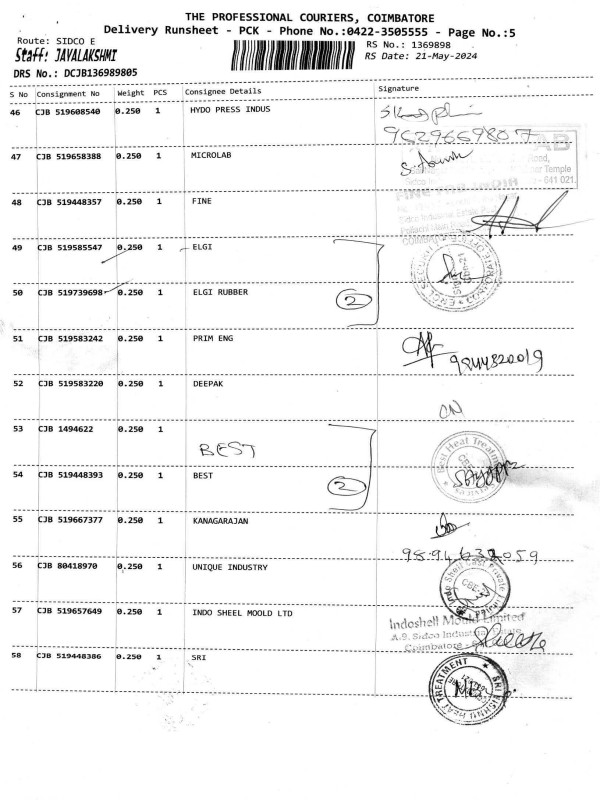 THE PROFESSIONAL COURIERS, COIMBATORE
Delivery Runsheet - PCK - Phone No.:0422-3505555 - Page No.:5
Route: SIDCO E
RS No.: 1369898
Staff: JAYALAKSHMI
RS Date: 21-May-2024
DRS No.: DCJB136989805
S No Consignment No Weight PCS Consignee Details Signature
46 CJB 519608540 0.250 1 HYDO PRESS INDUS
9629669807
47 CJB 519658388 0.250 1 MICROLAB
AB
Road,
Temple
- 641 021.
48 CJB 519448357 0.250 1 FINE
FINE
49 CJB 519585547 0.250 1 ELGI
50 CJB 519739698 0.250 1 ELGI RUBBER
2
51 CJB 519583242 0.250 1 PRIM ENG
9844820019
52 CJB 519583220 0.250 1 DEEPAK
53 CJB 1494622 0.250 1
BEST
Best Heat Treatment
54 CJB 519448393 0.250 1 BEST
2
55 CJB 519667377 0.250 1 KANAGARAJAN
56 CJB 80418970 0.250 1 UNIQUE INDUSTRY
57 CJB 519657649 0.250 1 INDO SHEEL MOOLD LTD
Indoshell Mould Limited
A-9, Sidco Industrial Estate
Coimbatore
58 CJB 519448386 0.250 1 SRI
SRI VISHNU HEAT TREATMENT